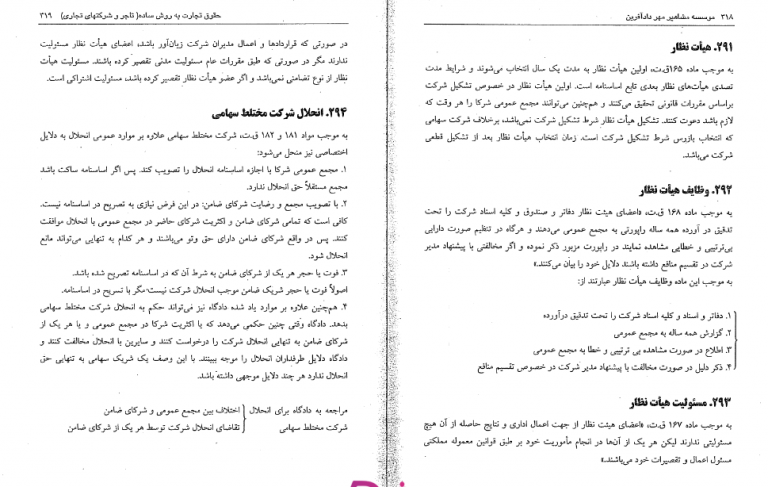 ۳۱۸ موسسه مشاهیر مهر دادآفرین
۲۹۱. هیأت نظار
به موجب ماده ۱۶۵ق.ت، اولین هیأت نظار به مدت یک سال انتخاب می‌شوند و شرایط مدت
تصدی هیأت‌های نظار بعدی تابع اساسنامه است. اولین هیأت نظار در خصوص تشکیل شرکت
براساس مقررات قانونی تحقیق می‌کنند و همچنین می‌توانند مجمع عمومی شرکا را هر وقت که
لازم باشد دعوت کنند. تشکیل هیأت نظار شرط تشکیل شرکت نمی‌باشد، برخلاف شرکت سهامی
که انتخاب بازرس شرط تشکیل شرکت است. زمان انتخاب هیأت نظار بعد از تشکیل قطعی
شرکت می‌باشد.
۲۹۲. وظایف هیأت نظار
به موجب ماده ۱۶۸ ق.ت، «اعضای هیئت نظار دفاتر و صندوق و کلیه اسناد شرکت را تحت
تدقیق در آورده همه ساله راپورتی به مجمع عمومی می‌دهند و هرگاه در تنظیم صورت دارایی
بی‌ترتیبی و خطایی مشاهده نمایند در راپورت مزبور ذکر نموده و اگر مخالفتی با پیشنهاد مدیر
شرکت در تقسیم منافع داشته باشند دلایل خود را بیان می‌کنند.»
به موجب این ماده وظایف هیأت نظار عبارتند از:
۱. دفاتر و اسناد و کلیه اسناد شرکت را تحت تدقیق درآورده
۲. گزارش همه ساله به مجمع عمومی
۳. اطلاع در صورت مشاهده بی ترتیبی و خطا به مجمع عمومی
۴. ذکر دلیل در صورت مخالفت با پیشنهاد مدیر شرکت در خصوص تقسیم منافع
۲۹۳. مسئولیت هیأت نظار
به موجب ماده ۱۶۷ ق.ت، «اعضای هیئت نظار از جهت اعمال اداری و نتایج حاصله از آن هیچ
مسئولیتی ندارند لیکن هر یک از آن‌ها در انجام مأموریت خود بر طبق قوانین معموله مملکتی
مسئول اعمال و تقصیرات خود می‌باشند.»
حقوق تجارت به روش ساده( تاجر و شرکتهای تجاری) ۳۱۹
در صورتی که قراردادها و اعمال مدیران شرکت زیان‌آور باشد، اعضای هیأت نظار مسئولیت
ندارند مگر در صورتی که طبق مقررات عام مسئولیت مدنی تقصیر کرده باشند. مسئولیت هیأت
نظار از نوع تضامنی نمی‌باشد و اگر عضو هیأت نظار تقصیر کرده باشد، مسئولیت اشتراکی است.
۲۹۴. انحلال شرکت مختلط سهامی
به موجب مواد ۱۸۱ و ۱۸۲ ق.ت، شرکت مختلط سهامی علاوه بر موارد عمومی انحلال به دلایل
اختصاصی نیز منحل می‌شود:
۱. مجمع عمومی شرکا با اجازه اساسنامه انحلال را تصویب کند. پس اگر اساسنامه ساکت باشد
مجمع مستقلاً حق انحلال ندارد.
۲. با تصویب مجمع و رضایت شرکای ضامن: در این فرض نیازی به تصریح در اساسنامه نیست.
کافی است که تمامی شرکای ضامن و اکثریت شرکای حاضر در مجمع عمومی با انحلال موافقت
کنند. پس در واقع شرکای ضامن دارای حق وتو می‌باشند و هر کدام به تنهایی می‌تواند مانع
انحلال شود.
۳. فوت یا حجر هر یک از شرکای ضامن به شرط آن که در اساسنامه تصریح شده باشد.
اصولاً فوت یا حجر شریک ضامن موجب انحلال شرکت نیست مگر با تسریح در اساسنامه.
۴. همچنین علاوه بر موارد یاد شده دادگاه نیز می‌تواند حکم به انحلال شرکت مختلط سهامی
بدهد. دادگاه وقتی چنین حکمی می‌دهد که یا اکثریت شرکا در مجمع عمومی و یا هر یک از
شرکای ضامن به تنهایی انحلال شرکت را درخواست کنند و سایرین با انحلال مخالفت کنند و
دادگاه دلایل طرفداران انحلال را موجه ببیند. با این وصف یک شریک سهامی به تنهایی حق
انحلال ندارد هر چند دلایل موجهی داشته باشد.
مراجعه به دادگاه برای انحلال اختلاف بین مجمع عمومی و شرکای ضامن
شرکت مختلط سهامی تقاضای انحلال شرکت توسط هر یک از شرکای ضامن